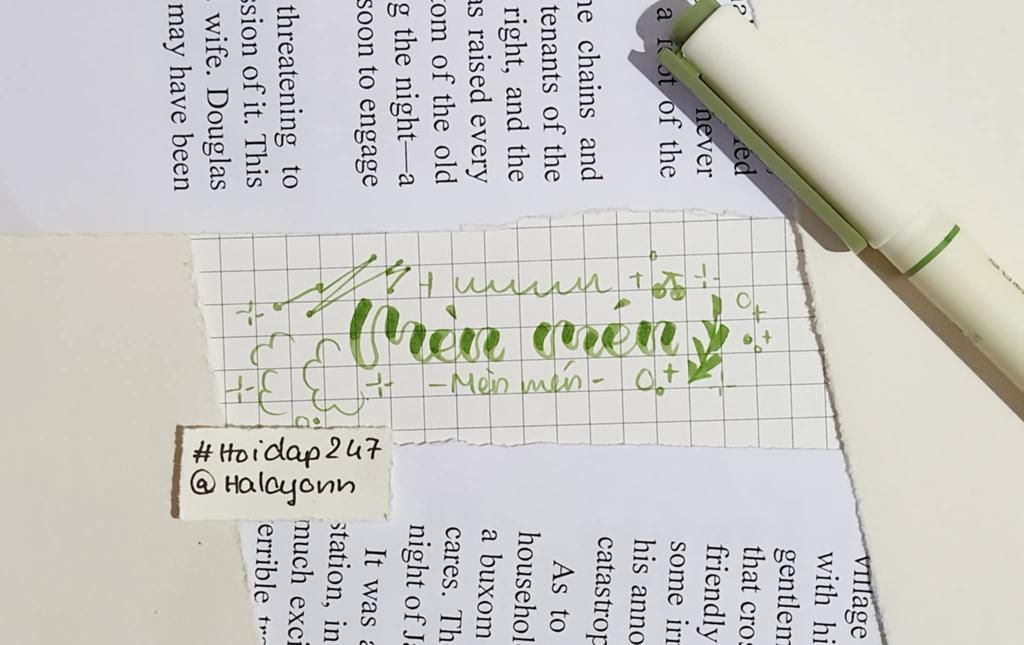 never
a of the
he chains and
tenants of the
right, and the
as raised every
om of the old
g the night—a
soon to engage
threatening to
sion of it. This
wife. Douglas
may have been
Mèn mén
-Mèn mén-
#Hoidap247
@Halcyonn
village
with hi
gentlem
that cros
friendly
some irr
his anno
catastrop
As to
househol
a buxom
cares. Th
night of Ja
It was a
station, in
much exci
errible